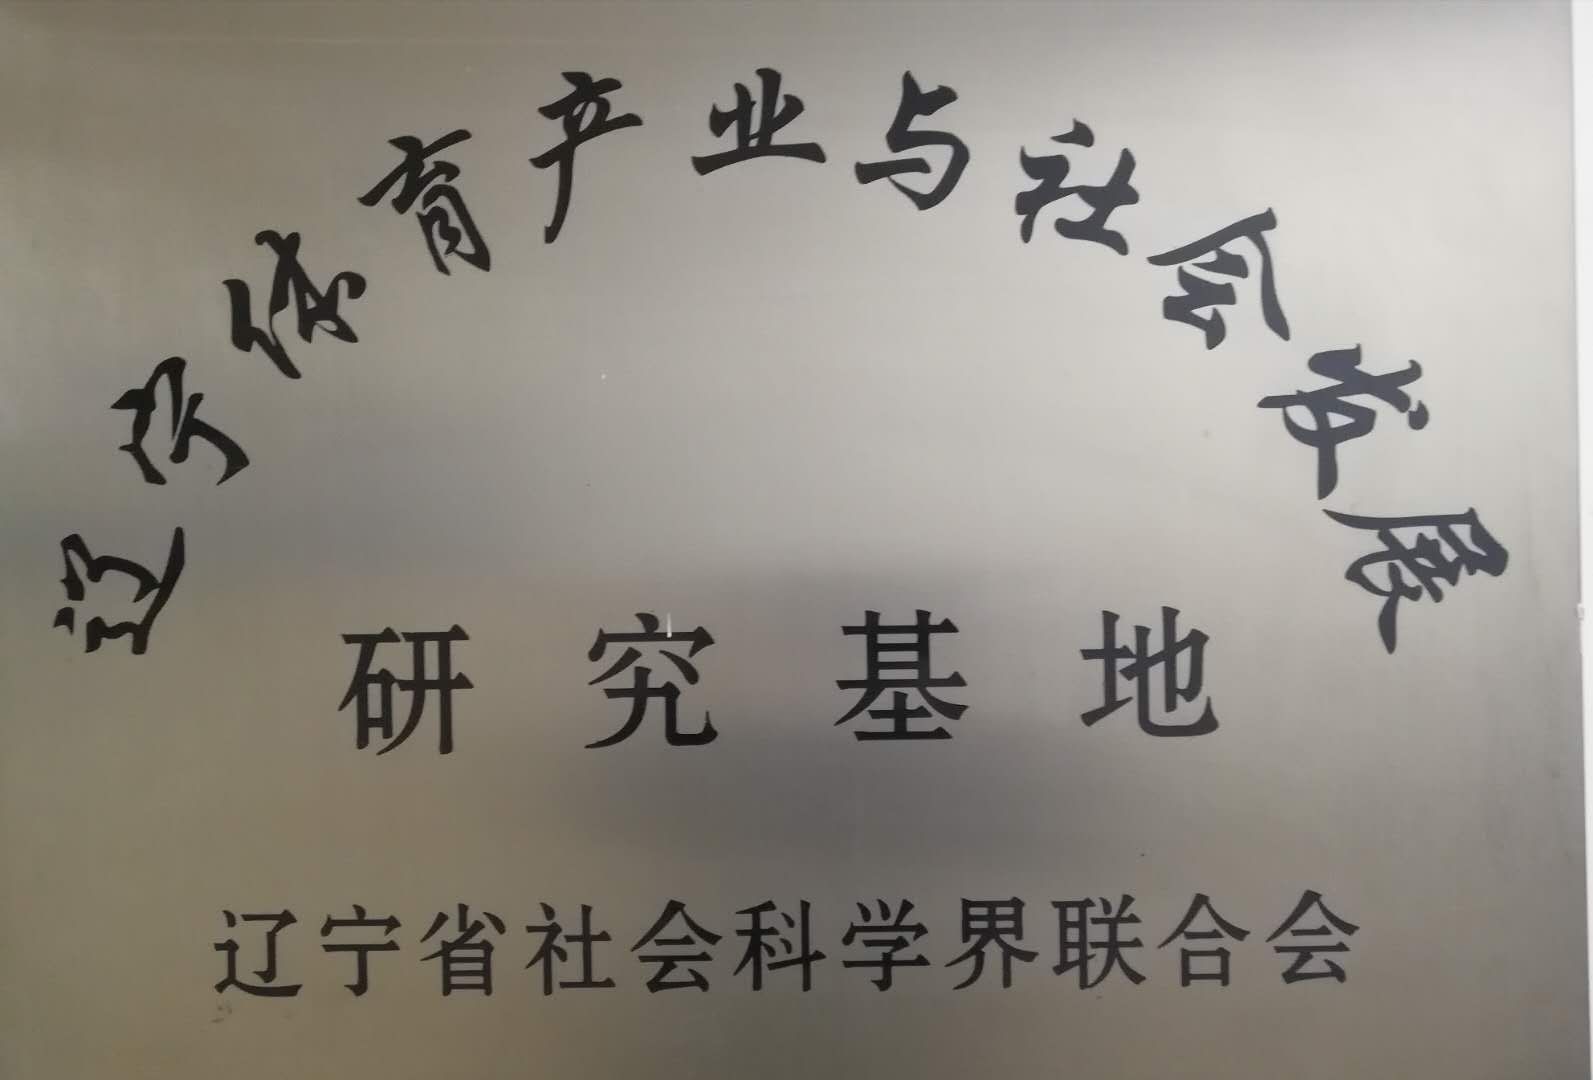 辽宁体育产业与社会发展
研究基地
辽宁省社会科学界联合会